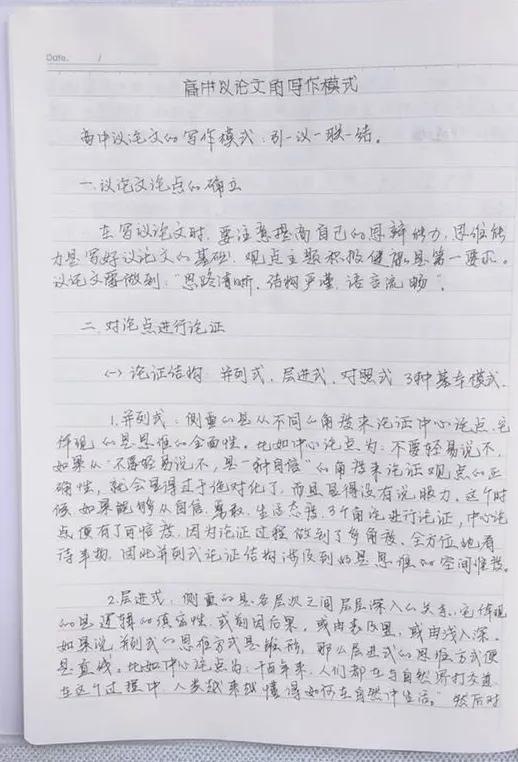 Date. /
高中议论文的写作模式
高中议论文的写作模式：引-议-联-结。
一.议论文论点的确立
在写议论文时，要注意提高自己的思辨能力，思维能
力是写好议论文的基础，观点主题积极健康是第一要求。
议论文要做到："思路清晰，结构严谨，语言流畅"。
二.对论点进行论证
(一)论证结构 并列式、层进式、对照式 3种基本模式.
1.并列式：侧重的是从不同的角度来论证中心论点，它
体现的是思维的全面性。比如中心论点为：不要轻易说不，
如果从"不要轻易说不，是一种自信"的角度来论证观点的正
确性，就会显得过于绝对化了，而且显得没有说服力。这个时
候，如果能够从自信、勇敢、生活态度，3个角度进行论证，中心论
点便有了可信度，因为论证过程做到了多角度、全方位地看
待事物，因此并列式论证结构涉及到的是思维的空间维度。
2.层进式：侧重的是各层次之间层层深入的关系，它体现
的是逻辑的缜密性，或前因后果，或由表及里，或由浅入深。
如果说并列式的思维方式是扇形，那么层进式的思维方式便
是直线。比如中心论点为："千百年来，人们都在与自然界打交道
在这个过程中，人类越来越懂得如何在自然中生活。"然后对